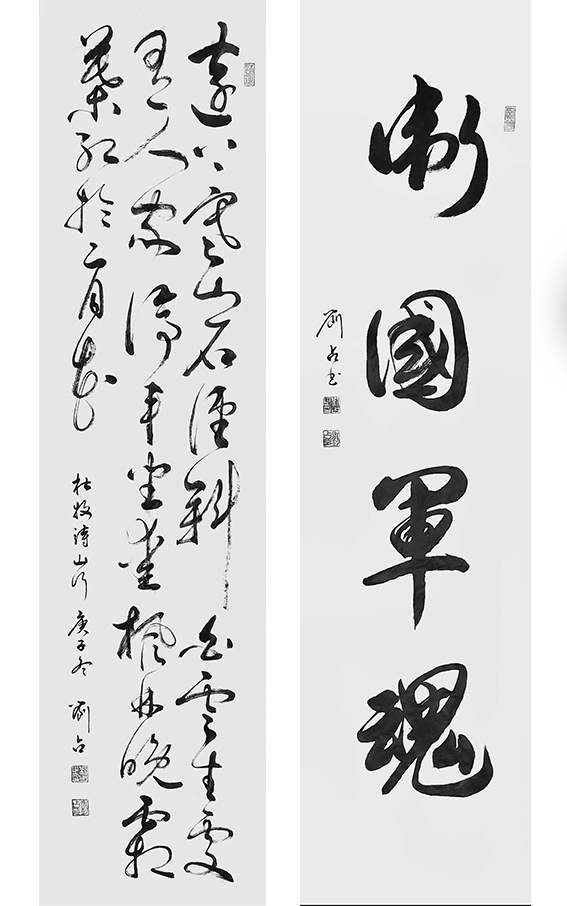 遠上寒山石徑斜白雲生處
有人家停車坐愛楓林晚霜
葉紅於二月花
杜牧詩山行庚子冬劉占
衛國軍魂
劉占书